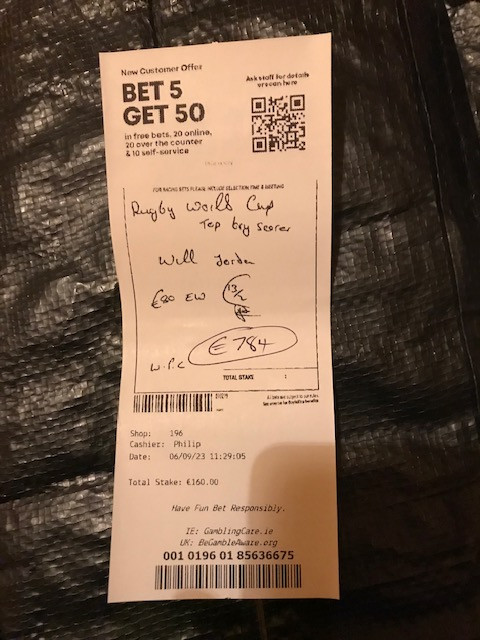 New Customer Offer
BET 5
GET 50
in free bets, 20 online,
20 over the counter
& 10 self-service
Ask staff for details
or scan here
FOR RACING BETS PLEASE INCLUDE SELECTION TIME & MEETING
Rugby World Cup
Top try scorer
Will Jordan
€80 EW 13/2
€784
TOTAL STAKE :
Shop: 196
Cashier: Philip
Date: 06/09/23 11:29:05
Total Stake: €160.00
Have Fun Bet Responsibly.
IE: GamblingCare.ie
UK: BeGambleAware.org
001 0196 01 85636675